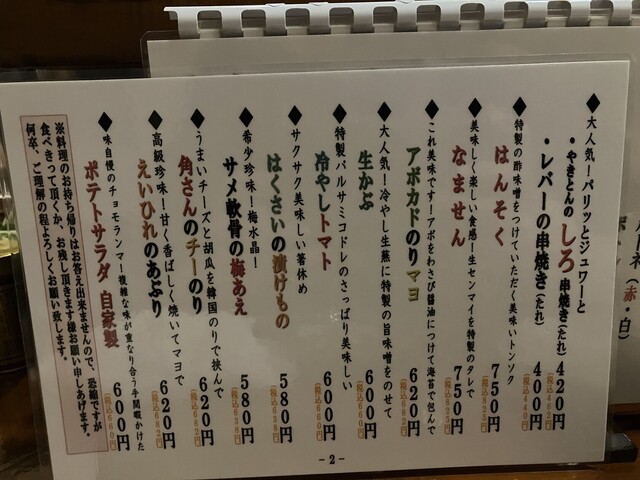 ◆大人気！パリッとジュワーと
・やきとんの しろ 串焼き(たれ) 420円
(税込462円)
・レバーの串焼き(たれ) 400円
(税込440円)
◆特製の酢味噌をつけていただく美味いトンソク
はんそく 750円
(税込825円)
◆美味しく楽しい食感！生センマイを特製のタレで
なません 750円
(税込825円)
◆これ美味です！アボをわさび醤油につけて海苔で包んで
アボカドのりマヨ 620円
(税込682円)
◆大人気！冷やし生蕪に特製の旨味噌をのせて
生かぶ 600円
(税込660円)
◆特製バルサミコドレのさっぱり美味しい
冷やしトマト 600円
(税込660円)
◆サクサク美味しい箸休め
はくさいの漬けもの 580円
(税込638円)
◆希少珍味！梅水晶！
サメ軟骨の梅あえ 580円
(税込638円)
◆うまいチーズと胡瓜を韓国のりで挟んで
角さんのチーのり 620円
(税込682円)
◆高級珍味！甘く香ばしく焼いてマヨで
えいひれのあぶり 620円
(税込682円)
◆味自慢のチョモランマー複雑な味が重なり合う手間暇かけた
ポテトサラダ 自家製 600円
(税込660円)
※料理のお持ち帰りはお答え出来ませんので、恐縮ですが
食べきって頂くか、お残し頂きます様お願い申しあげます。
何卒、ご理解の程よろしくお願い致します。
-2-
(赤・白)